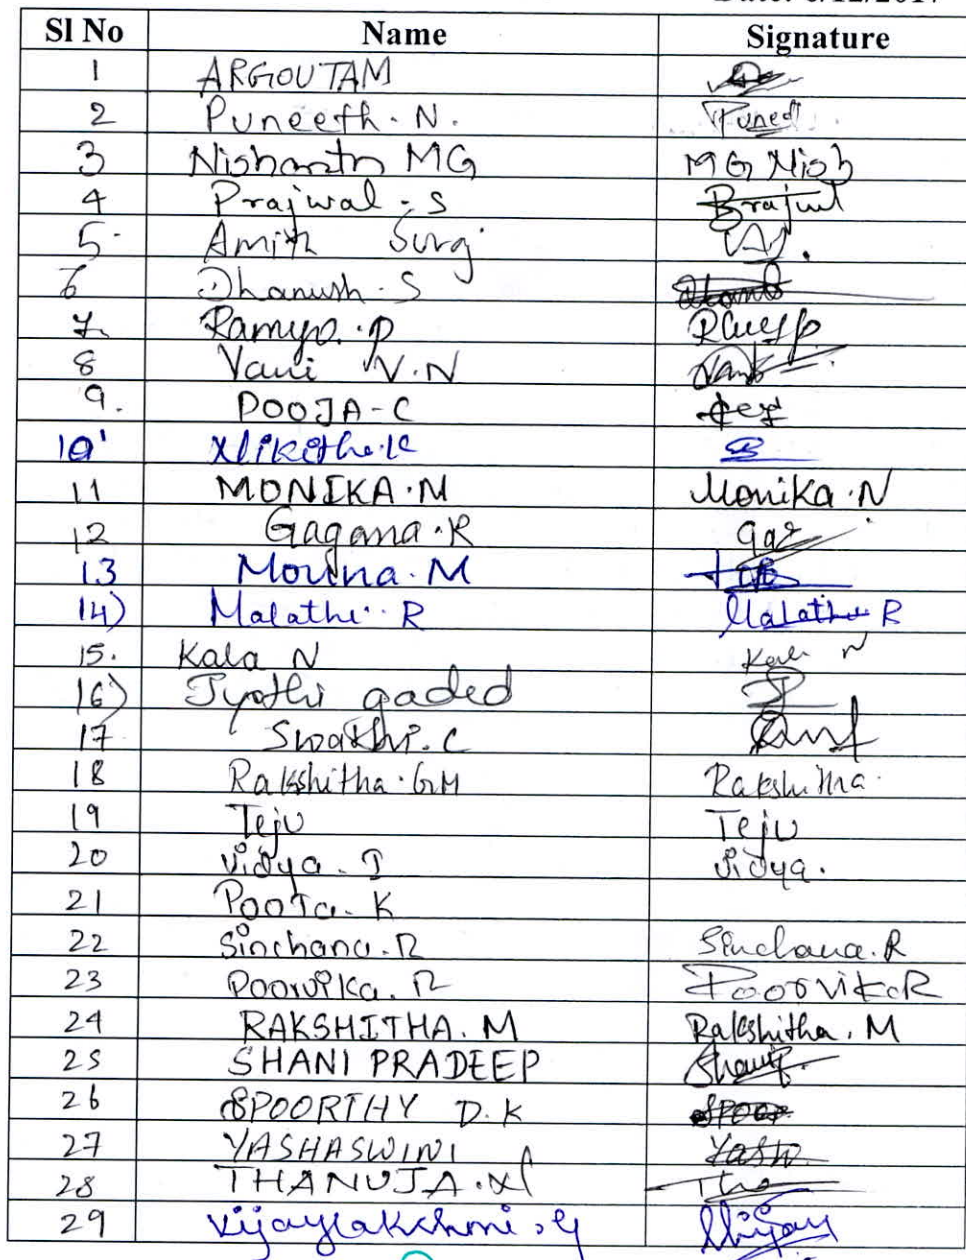 Sl No Name Signature
1 ARGOUTAM
2 Puneeth. N. Puneet
3 Nishanth MG MG Nish
4 Prajwal - S Prajwal
5. Amith Suraj
6 Dhanush. S
7. Ramya. P
8 Vani V.N Vani
9. POOJA - C
10 Likitha. K
11 MONIKA. M Monika. N
12 Gagana. R gag
13 Mouna. M
14) Malathi. R Malathi R
15. Kala N Kala N
16) Jyothi gaded J
17 Swathi. C
18 Rakshitha. GM Rakshitha.
19 Teju Teju
20 Vidya. J Vidya.
21 Pooja. K
22 Sinchana. R Sinchana. R
23 Poorvika. R Poorvika R
24 RAKSHITHA. M Rakshitha. M
25 SHANI PRADEEP
26 SPOORTHY D. K SPOOR
27 YASHASWINI Yash
28 THANUJA. Tha
29 Vijaylakshmi. G Vijay